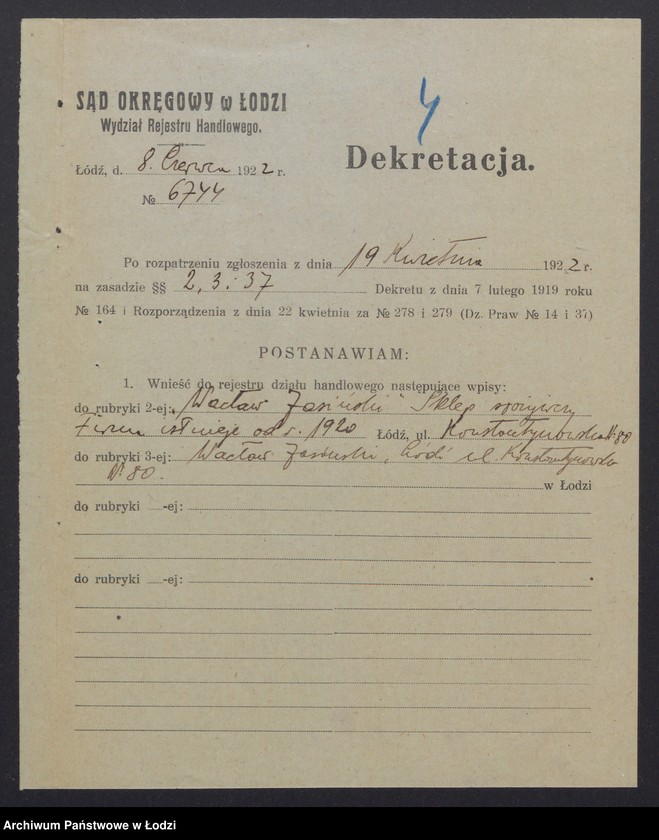 4
SĄD OKRĘGOWY w ŁODZI
Wydział Rejestru Handlowego.
Dekretacja.
Łódź, d. 8. Czerwca 1922 r.
№ 6744
Po rozpatrzeniu zgłoszenia z dnia 19 Kwietnia 1922 r.
na zasadzie §§ 2, 3 i 37 Dekretu z dnia 7 lutego 1919 roku
№ 164 i Rozporządzenia z dnia 22 kwietnia za № 278 i 279 (Dz. Praw № 14 i 37)
POSTANAWIAM:
1. Wnieść do rejestru działu handlowego następujące wpisy:
do rubryki 2-ej: „Wacław Jasiński" Sklep spożywczy
Firma istnieje od r. 1920 Łódź, ul. Konstantynowska № 80
do rubryki 3-ej: Wacław Jasiński, Łódź ul. Konstantynowska
№ 80. w Łodzi
do rubryki -ej:
do rubryki -ej:
Archiwum Państwowe w Łodzi